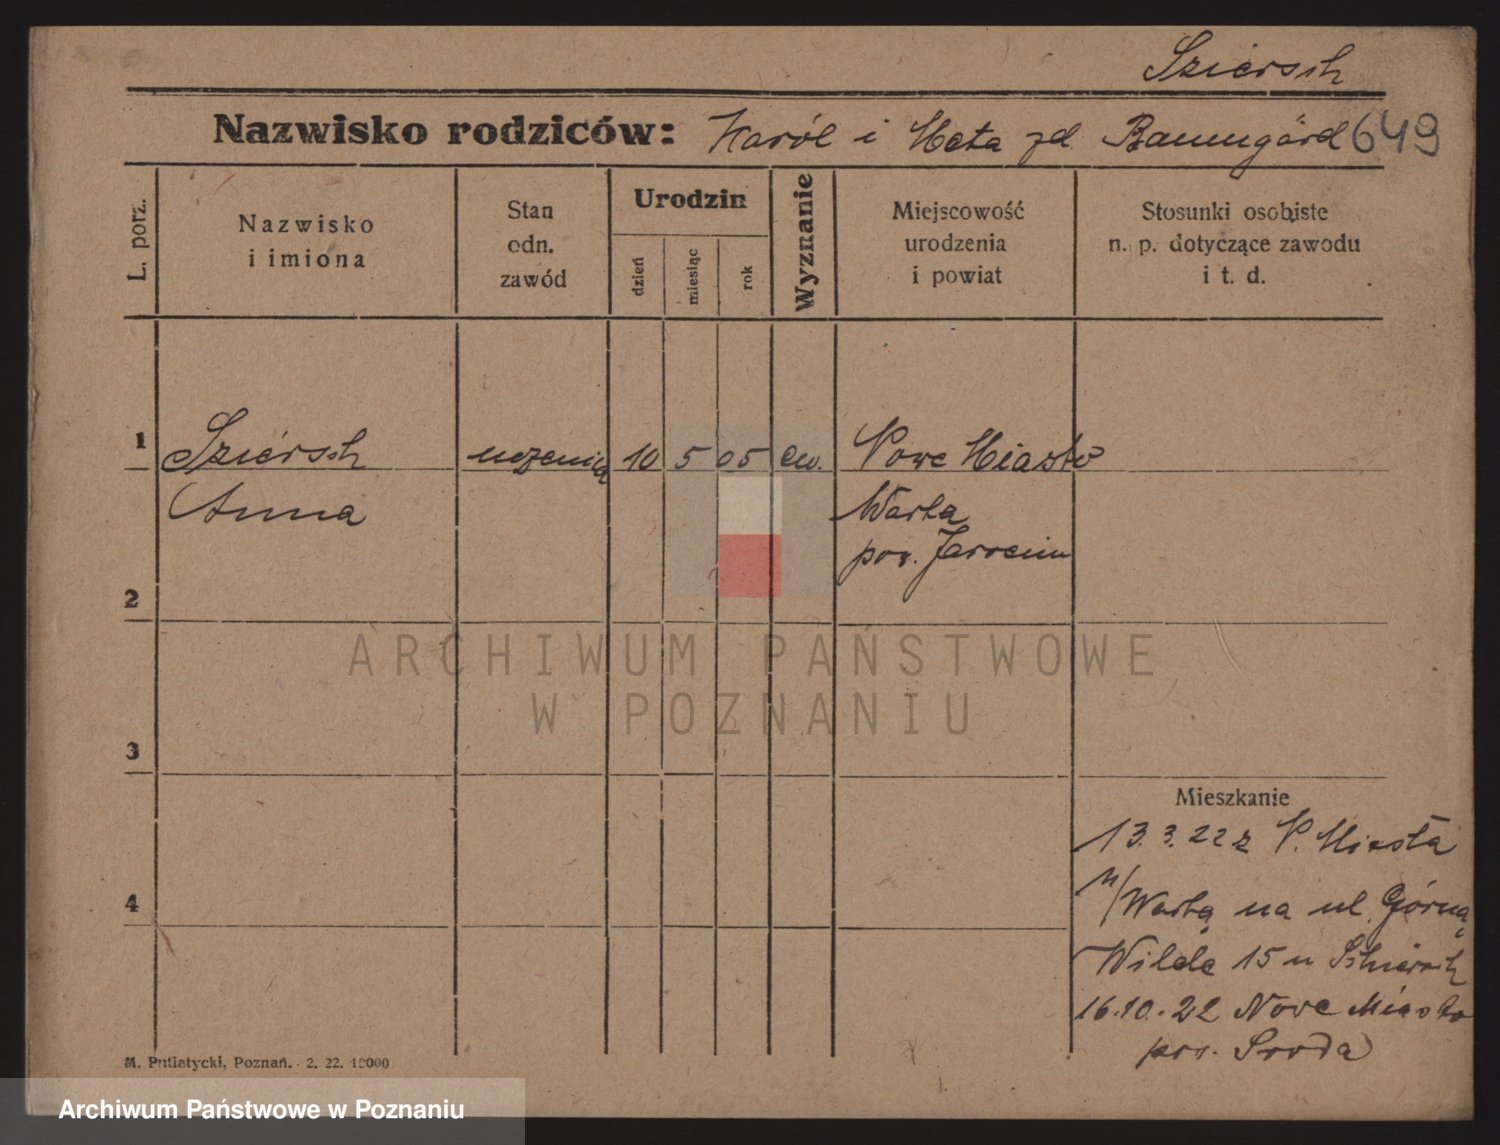 Sziersch
Nazwisko rodziców: Karól i Meta zd. Baumgärd 649
L. porz.
Nazwisko
i imiona
Stan
odn.
zawód
Urodzin
dzień
miesiąc
rok
Wyznanie
Miejscowość
urodzenia
i powiat
Stosunki osobiste
n. p. dotyczące zawodu
i t. d.
1 Sziersch uczenica 10 5 05 ew. Nowe Miasto
Anna Warta
pow. Jarocin
2
3
4
Mieszkanie
13.3.22 z N. Miasta
n/Wartą na ul. Górną
Wilde 15 u
16.10.22 Nowe Miasto
pow. Środa
M. Putiatycki, Poznań. 2. 22. 10000
ARCHIWUM PAŃSTWOWE
W POZNANIU
Archiwum Państwowe w Poznaniu